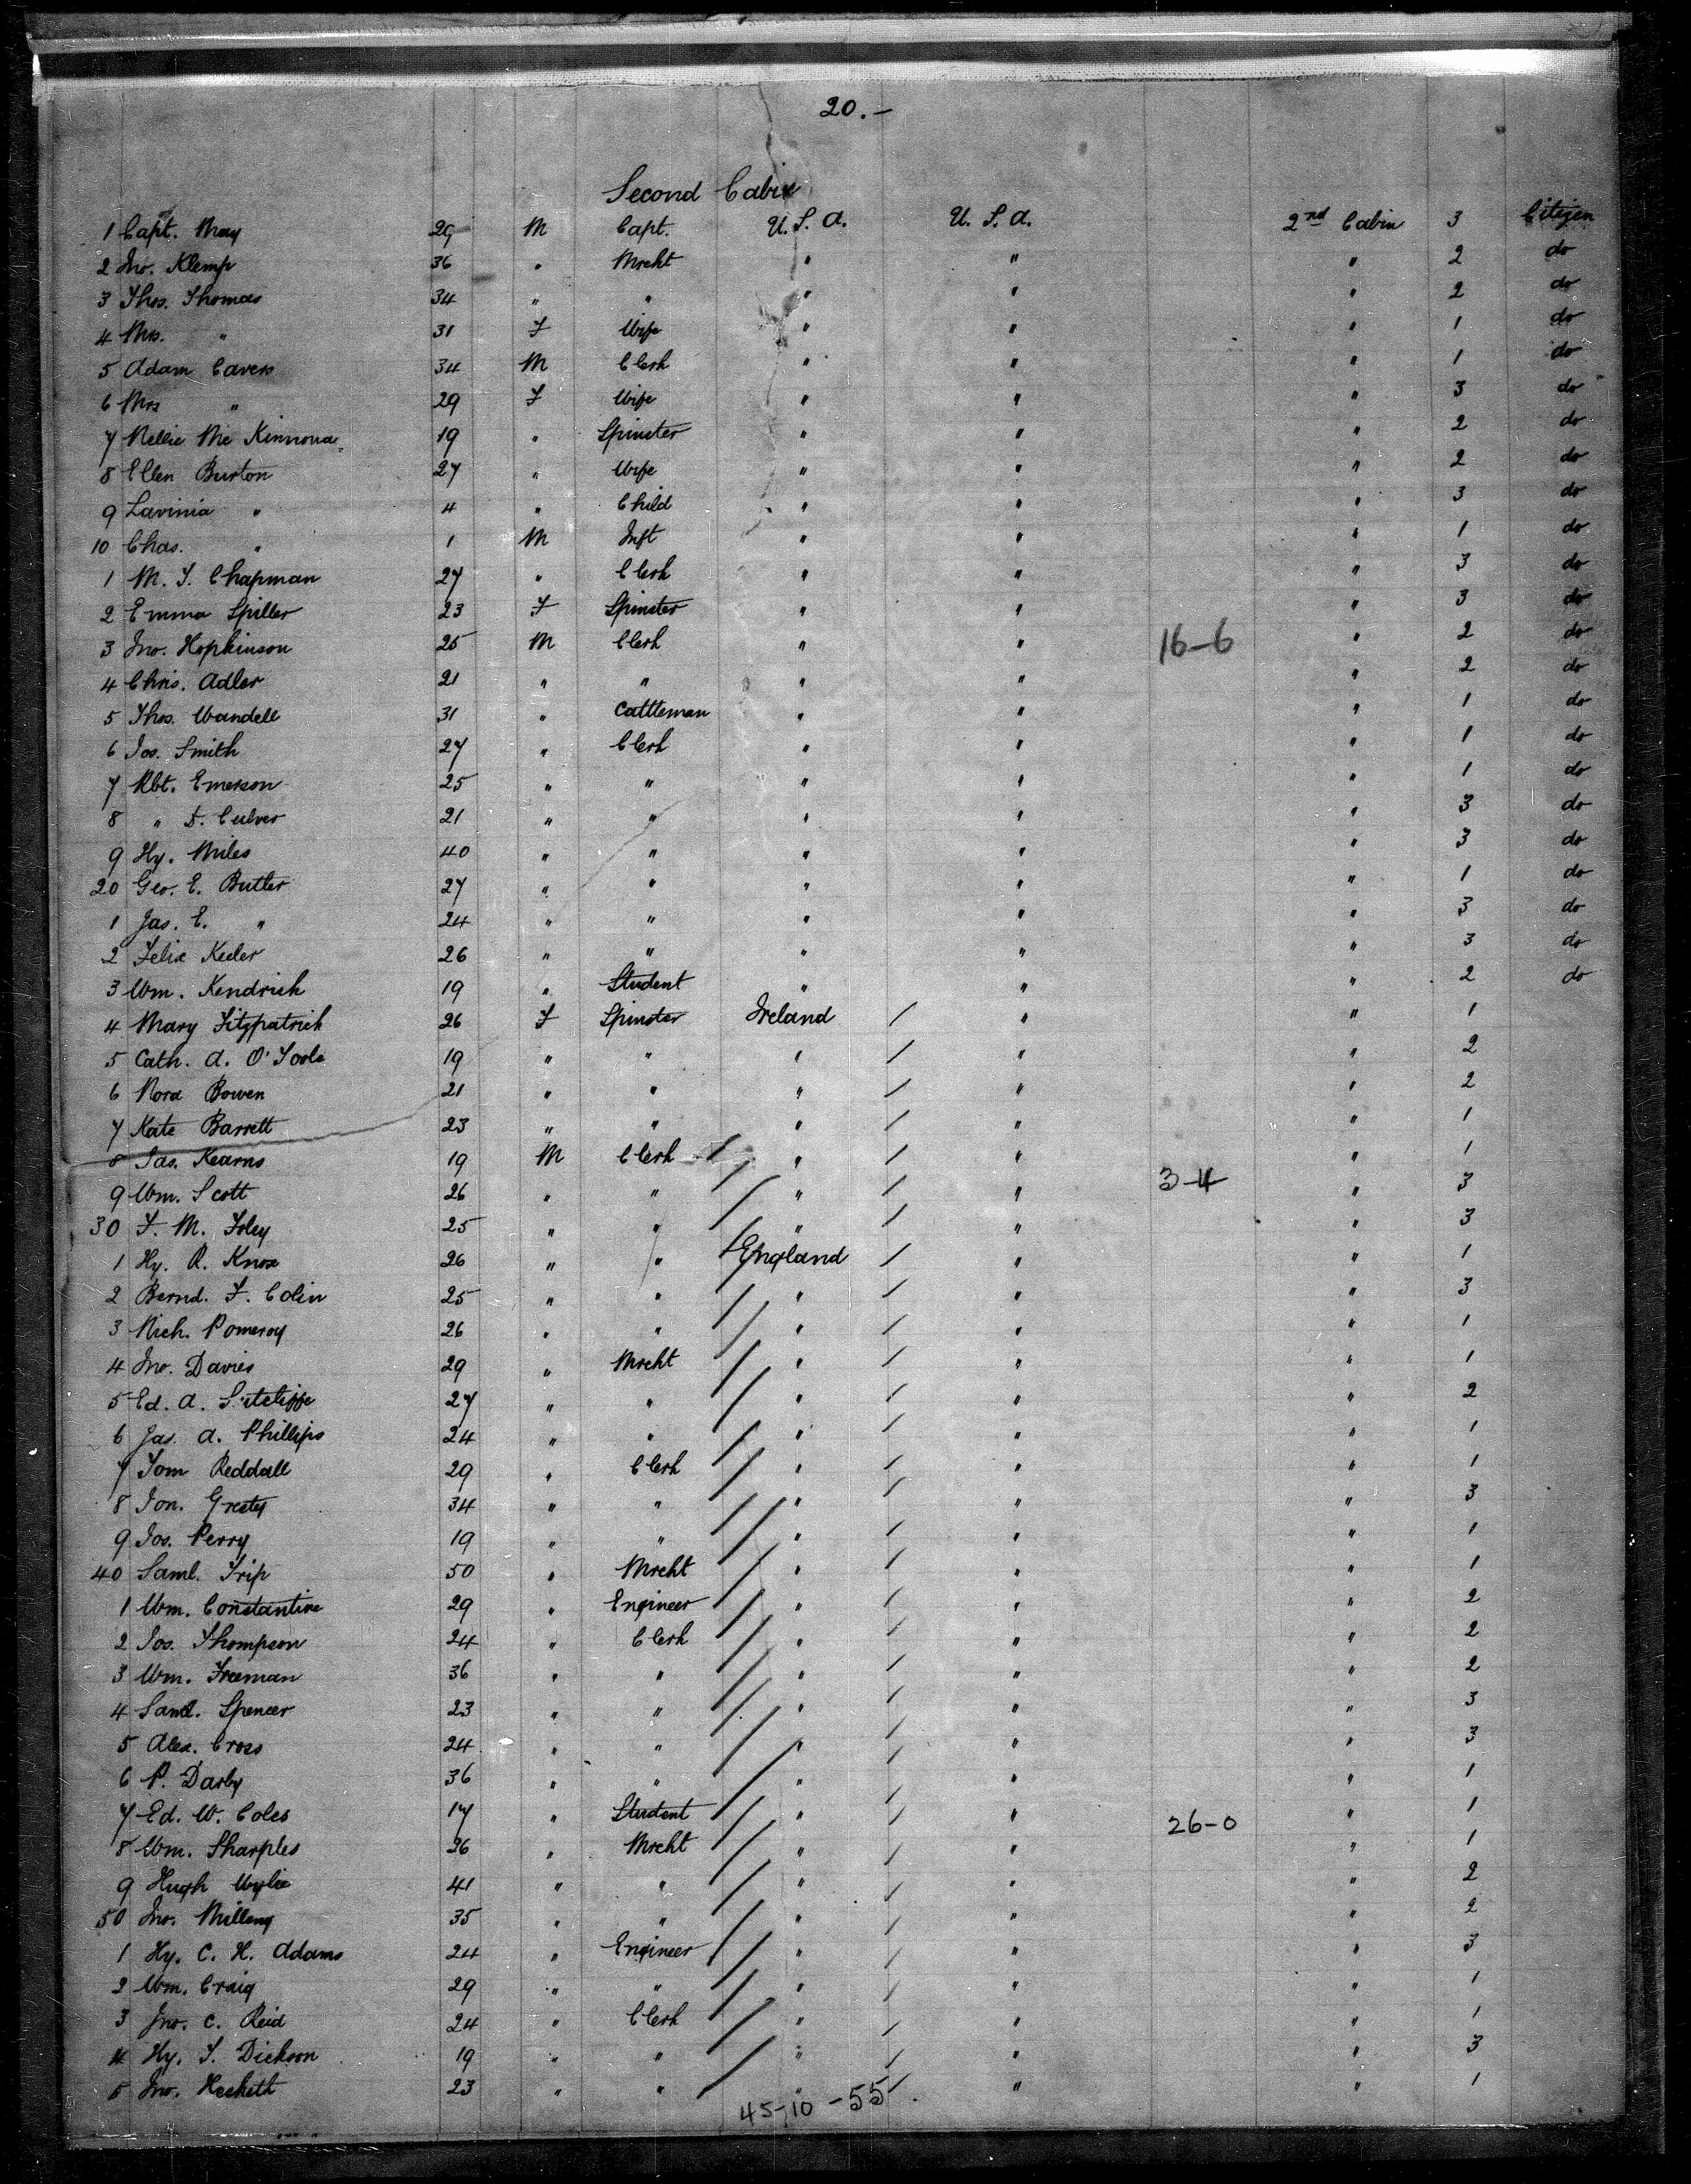 20.-
Second Cabin
1 Capt. May 29 M Capt. U.S.A. U.S.A. 2nd Cabin 3 Citizen
2 Jno. Klemp 36 " Mrcht " " " 2 do
3 Thos. Thomas 34 " " " " " 2 do
4 Mrs. " 31 F Wife " " " 1 do
5 Adam Cavers 34 M Clerk " " " 1 do
6 Mrs " 29 F Wife " " " 3 do
7 Nellie Mc Kinnona 19 " Spinster " " " 2 do
8 Ellen Burton 27 " Wife " " " 2 do
9 Lavinia " 4 " Child " " " 3 do
10 Chas. " 1 M Inft " " " 1 do
1 M. T. Chapman 27 " Clerk " " " 3 do
2 Emma Spiller 23 F Spinster " " " 3 do
3 Jno. Hopkinson 25 M Clerk " " 16-6 " 2 do
4 Chris. Adler 21 " " " " " 2 do
5 Thos. Wandell 31 " Cattleman " " " 1 do
6 Jos. Smith 27 " Clerk " " " 1 do
7 Rbt. Emerson 25 " " " " " 1 do
8 " D. Culver 21 " " " " " 3 do
9 Hy. Miles 40 " " " " " 3 do
20 Geo. E. Butler 27 " " " " " 1 do
1 Jas. E. " 24 " " " " " 3 do
2 Felix Keeler 26 " " " " " 3 do
3 Wm. Kendrick 19 " Student " " " 2 do
4 Mary Fitzpatrick 26 F Spinster Ireland / " " 1
5 Cath. A. O'Toole 19 " " " / " " 2
6 Nora Bowen 21 " " " / " " 2
7 Kate Barrett 23 " " " / " " 1
8 Jas. Kearns 19 M Clerk / " / " " 1
9 Wm. Scott 26 " " / " / " 3-4 " 3
30 F. M. Foley 25 " " / " / " " 3
1 Hy. R. Knox 26 " " / England / " " 1
2 Bernd. F. Colin 25 " " / " / " " 3
3 Nich. Pomeroy 26 " " / " / " " 1
4 Jno. Davies 29 " Mrcht / " / " " 1
5 Ed. A. Sutcliffe 27 " " / " / " " 2
6 Jas. A. Phillips 24 " " / " / " " 1
7 Tom Reddall 29 " Clerk / " / " " 1
8 Jon. 34 " " / " / " " 3
9 Jos. Perry 19 " " / " / " " 1
40 Saml. Trip 50 " Mrcht / " / " " 1
1 Wm. Constantine 29 " Engineer / " / " " 2
2 Jos. Thompson 24 " Clerk / " / " " 2
3 Wm. Freeman 36 " " / " / " " 2
4 Saml. Spencer 23 " " / " / " " 3
5 Alex. Cross 24 " " / " / " " 3
6 P. Darby 36 " " / " / " " 1
7 Ed. W. Coles 17 " Student / " / " 26-0 " 1
8 Wm. Sharples 26 " Mrcht / " / " " 1
9 Hugh Wylie 41 " " / " / " " 2
50 Jno. 35 " " / " / " " 2
1 Hy. C. H. Adams 24 " Engineer / " / " " 3
2 Wm. Craig 29 " " / " / " " 1
3 Jno. C. Reid 24 " Clerk / " / " " 1
4 Hy. T. Dickson 19 " " / " / " " 3
5 Jno. Hesketh 23 " " / " / " " 1
45-10-55